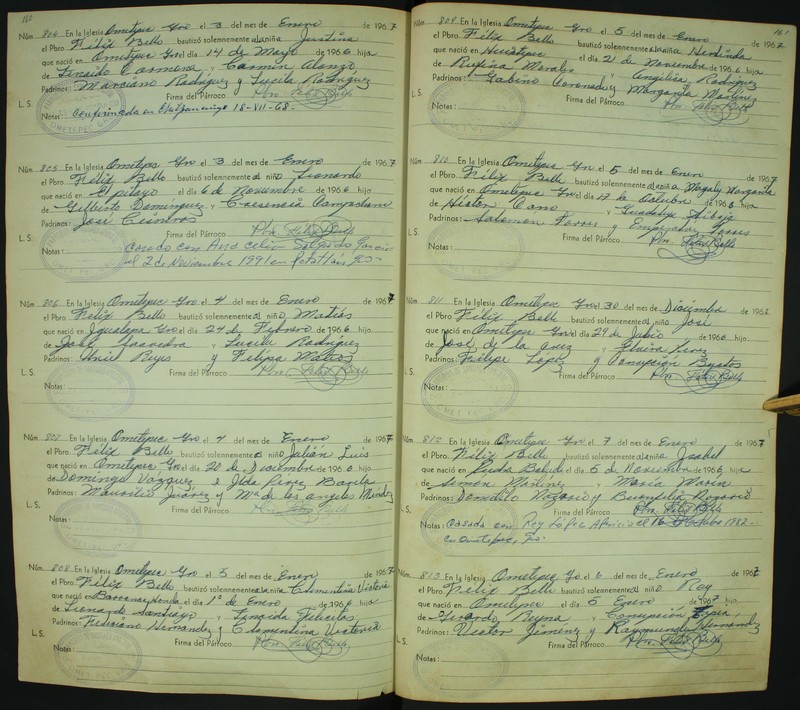 160
Núm. 804 En la Iglesia Ometepec Gro el 3 del mes de Enero de 1967
el Pbro. Félix Bello bautizó solemnemente a la niña Justina
que nació en Ometepec Gro el día 14 de Mayo de 1966 hija
de Sinaido Carmona y Carmen Alonzo
Padrinos: Marciano Rodríguez y Lucila Rodríguez
L. S. Firma del Párroco Pbro. Félix Bello
Notas: Confirmada en 18-VII-68-
Núm. 805 En la Iglesia Ometepec Gro el 3 del mes de Enero de 1967
el Pbro. Félix Bello bautizó solemnemente al niño Leonardo
que nació en El pitayo el día 6 de Noviembre de 1966 hijo
de Gilberto Domínguez y Cresencia
Padrinos: José Cisneros
Firma del Párroco Pbro. Félix Bello
L. S. Notas: Casado con Salgado García
el 2 de Noviembre 1991 en Gro-
Núm. 806 En la Iglesia Ometepec Gro el 4 del mes de Enero de 1967
el Pbro. Félix Bello bautizó solemnemente al niño Matías
que nació en Igualapa Gro el día 24 de Febrero de 1966 hijo
de José Saavedra y Lucila Rodríguez
Padrinos: Uriel Reyes y Felipa Mateos
L. S. Firma del Párroco Pbro. Félix Bello
Notas:
Núm. 807 En la Iglesia Ometepec Gro el 4 del mes de Enero de 1967
el Pbro. Félix Bello bautizó solemnemente al niño Julián Luis
que nació en Ometepec Gro el día 20 de Diciembre de 1966 hijo
de Domingo Vázquez e Ilda Pérez
Padrinos: Mauricio Juárez y Ma. de los angeles Méndez
L. S. Firma del Párroco Pbro. Félix Bello
Notas:
Núm. 808 En la Iglesia Ometepec Gro el 5 del mes de Enero de 1967
el Pbro. Félix Bello bautizó solemnemente a la niña Clementina Victoria
que nació en Barranca Honda el día 1º de Enero de 1966 hija
de Leonardo Santiago y Felicitas
Padrinos: Feliciano Hernández y Clementina Victoria
L. S. Firma del Párroco Pbro. Félix Bello
Notas:
161
Núm. 809 En la Iglesia Ometepec Gro el 5 del mes de Enero de 1967
el Pbro. Félix Bello bautizó solemnemente a la niña Herlinda
que nació en Huixtepec el día 21 de Noviembre de 1966 hija
de Rufina Morales y Angélica Rodríguez
Padrinos: Gabino Coronado y Margarita Martínez
L. S. Firma del Párroco Pbro. Félix Bello
Notas:
Núm. 810 En la Iglesia Ometepec Gro el 5 del mes de Enero de 1967
el Pbro. Félix Bello bautizó solemnemente a la niña Magaly Margarita
que nació en Ometepec Gro el día 17 de Octubre de 1966 hija
de Héctor Cano y Guadalupe
Padrinos: Salomón Torres y Torres
L. S. Firma del Párroco Pbro. Félix Bello
Notas:
Núm. 811 En la Iglesia Ometepec Gro el 30 del mes de Diciembre de 1966
el Pbro. Félix Bello bautizó solemnemente al niño José
que nació en Ometepec Gro el día 29 de Julio de 1966 hijo
de José de la Cruz y Elvira Pérez
Padrinos: Felipe López y Concepción Bustos
L. S. Firma del Párroco Pbro. Félix Bello
Notas:
Núm. 812 En la Iglesia Ometepec Gro el 7 del mes de Enero de 1967
el Pbro. Félix Bello bautizó solemnemente a la niña Isabel
que nació en Piedra el día 5 de Noviembre de 1966 hija
de Simón Martínez y María Marín
Padrinos: Domitilo Nazario y Nazario
L. S. Firma del Párroco Pbro. Félix Bello
Notas: Casada con Roy López Aparicio el 16 Octubre 1982-
en Ometepec, Gro.
Núm. 813 En la Iglesia Ometepec Gro el 6 del mes de Enero de 1967
el Pbro. Félix Bello bautizó solemnemente al niño Roy
que nació en Ometepec el día 5 Enero de 1967 hijo
de Gerardo Reyna y Concepción Tapia
Padrinos: Víctor Jiménez y Raymunda Hernández
L. S. Firma del Párroco Pbro. Félix Bello
Notas: